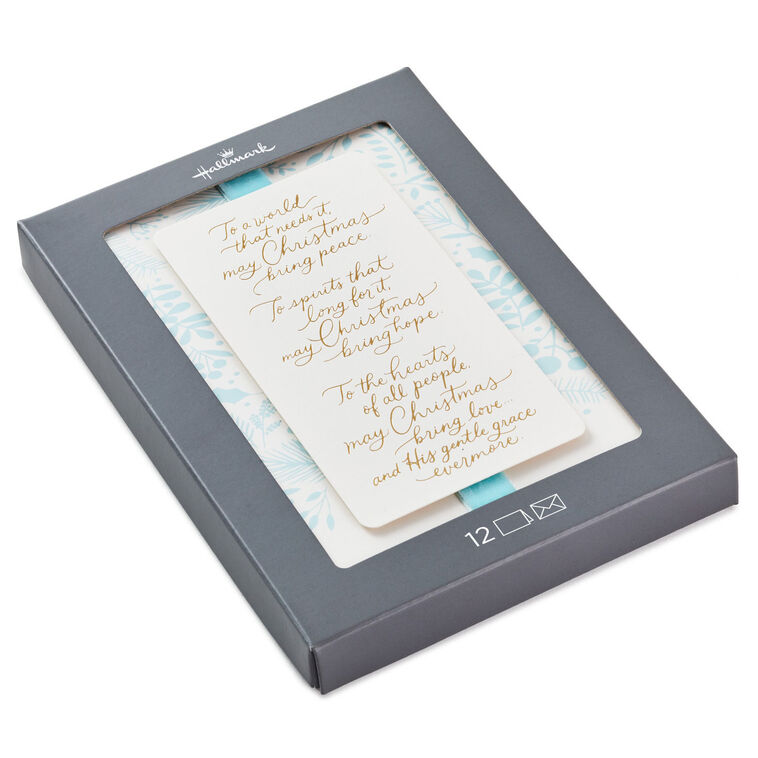 Hallmark
To a world
that needs it,
may Christmas
bring peace.
To spirits that
long for it,
may Christmas
bring hope.
To the hearts
of all people,
may Christmas
bring love...
and His gentle grace
evermore.
12